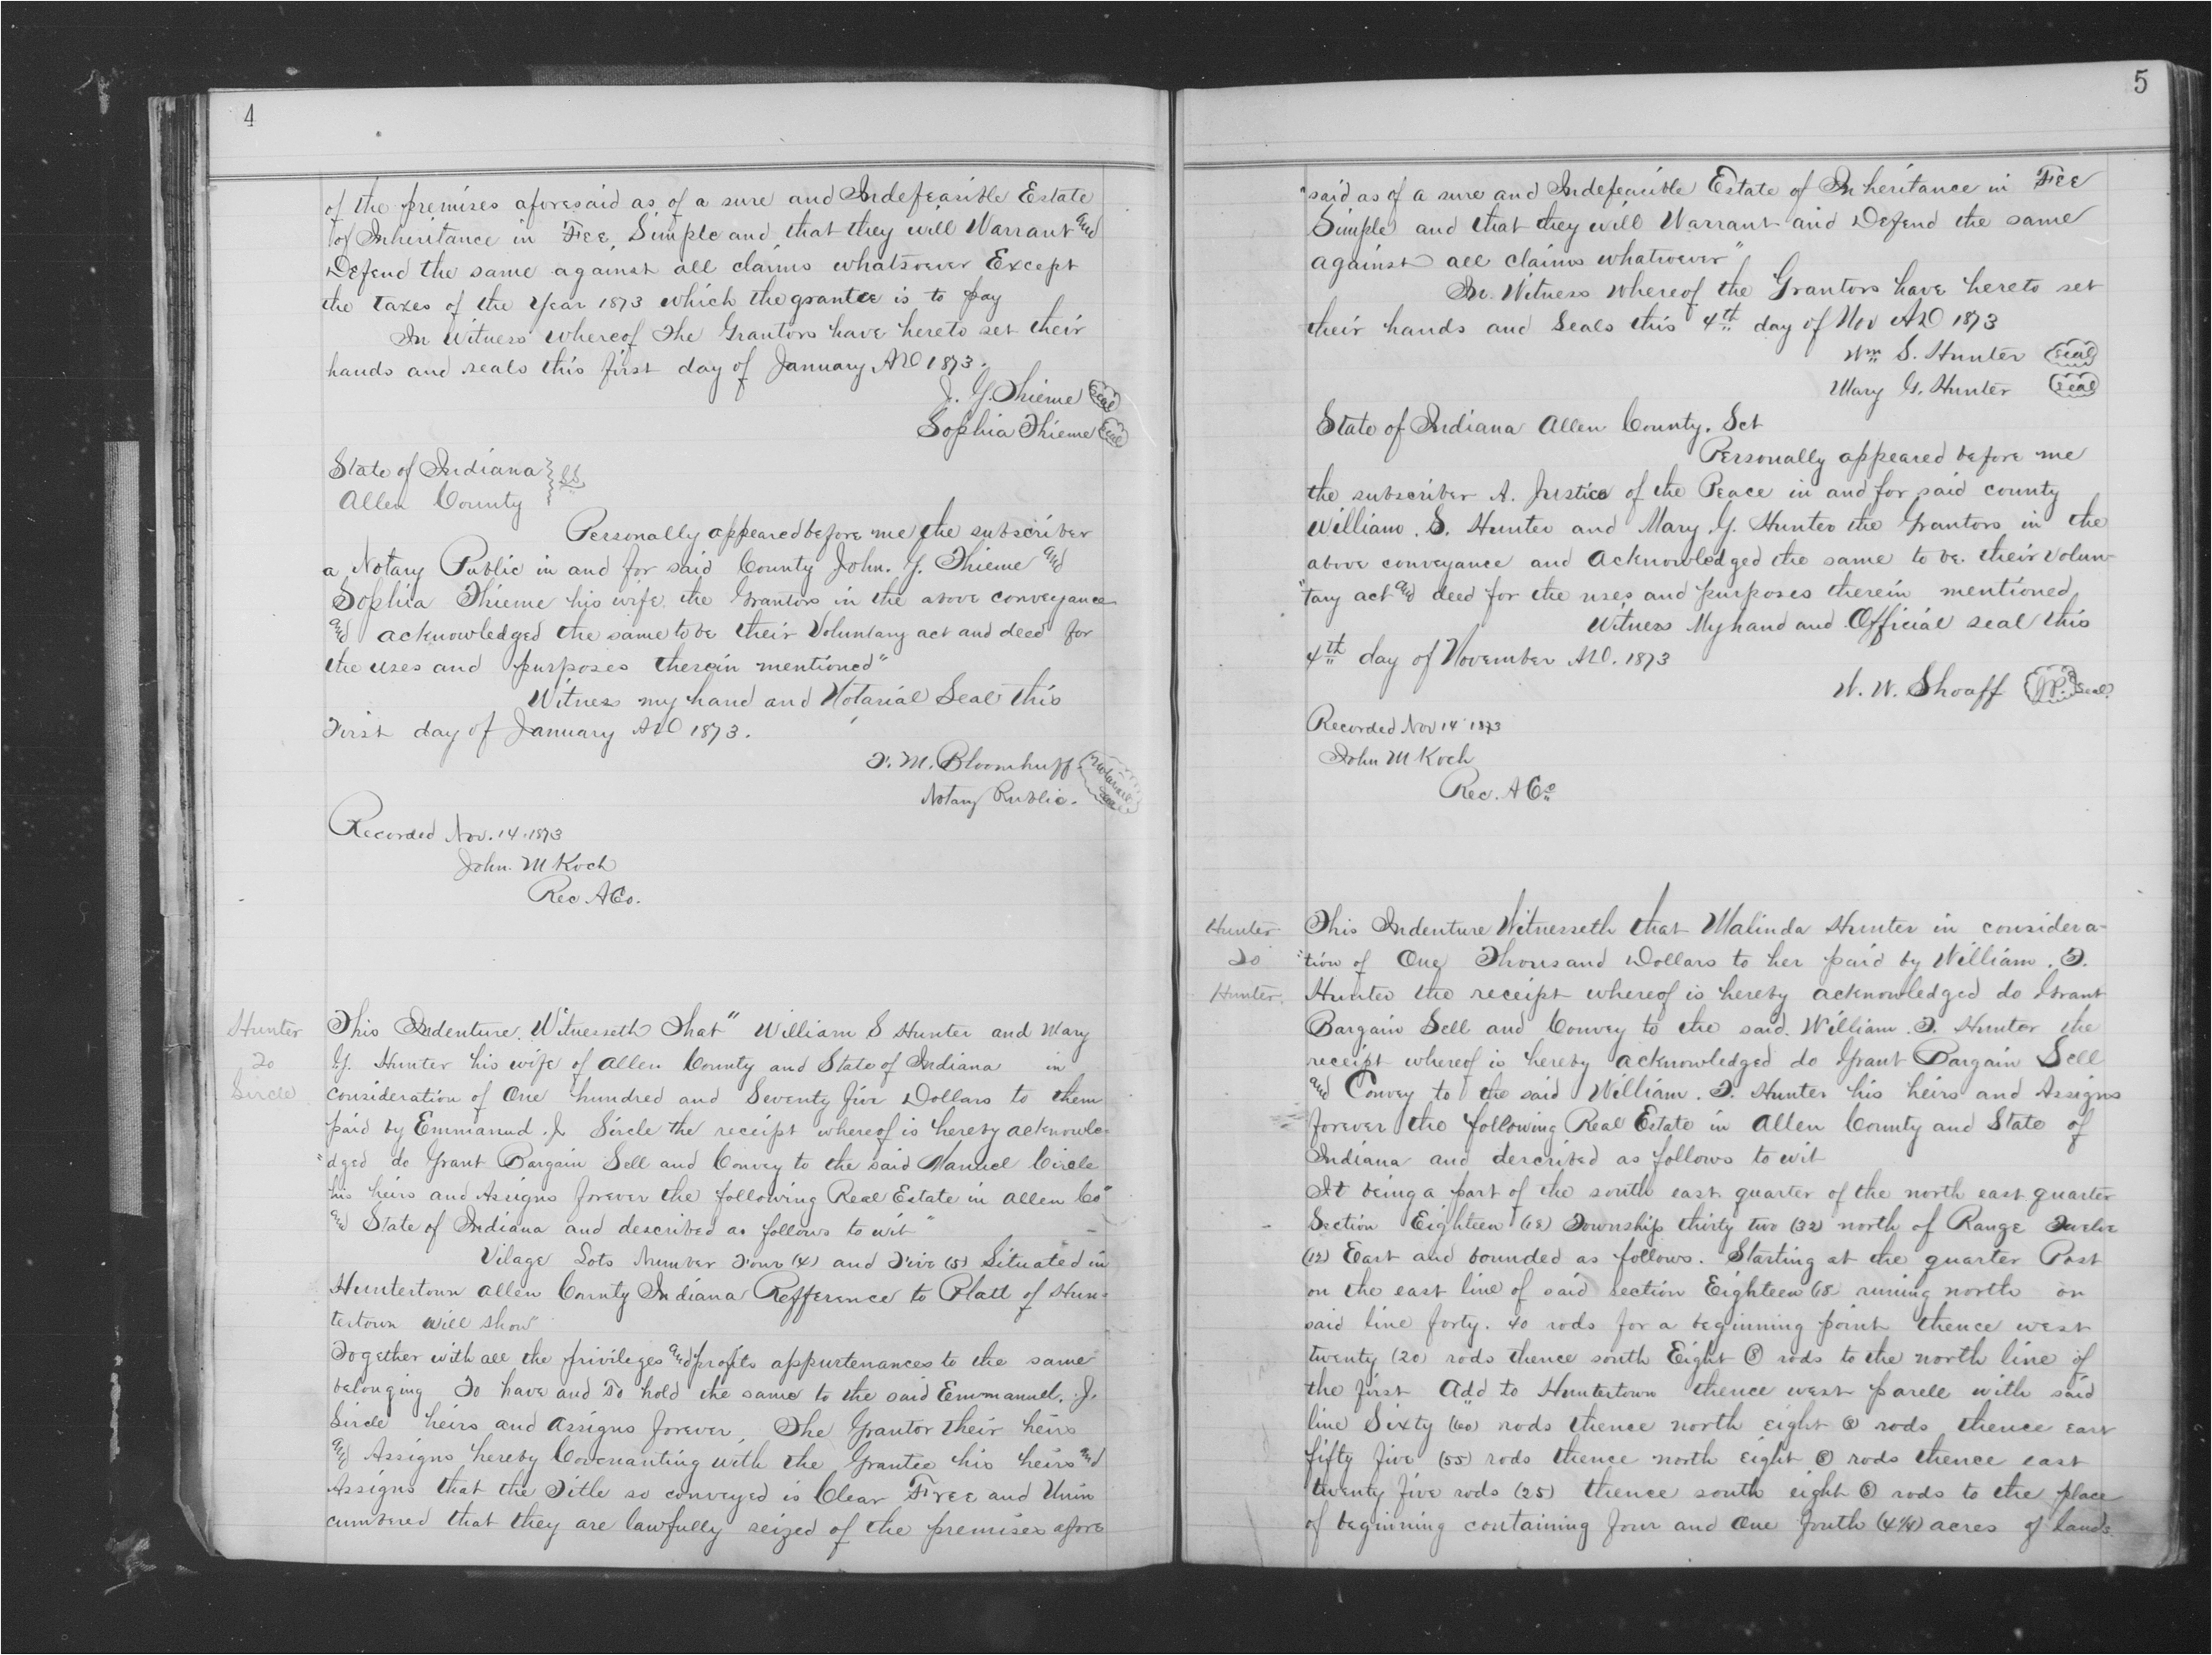 4
of the premises aforesaid as of a sure and Indefeasible Estate
of Inheritance in Fee, Simple and that they will Warrant and
Defend the same against all claims whatsoever Except
the taxes of the Year 1873 which the grantee is to pay
In Witness whereof The Grantors have hereto set their
hands and seals this first day of January AD 1873.
J. G. Thieme Seal
Sophia Thieme Seal
State of Indiana } SS
Allen County
Personally appeared before me the subscriber
a Notary Public in and for said County John. G. Thieme and
Sophia Thieme his wife the Grantors in the above conveyance
and acknowledged the same to be their Voluntary act and deed for
the uses and purposes therein mentioned"
Witness my hand and Notarial Seal this
First day of January AD 1873.
T. M. Bloomhuff Notarial Seal
Notary Public.
Recorded Nov. 14. 1873
John. M Koch
Rec ACo.
Hunter
To
Sircle
This Indenture. Witnesseth That" William S Hunter and Mary
G. Hunter his wife of Allen County and State of Indiana in
consideration of One hundred and Seventy five Dollars to them
paid by Emmanuel. J. Sircle the receipt whereof is hereby acknowle=
"dged do Grant Bargain Sell and Convey to the said Manuel Circle
his heirs and Assigns forever the following Real Estate in Allen Co"
and State of Indiana and described as follows to wit"
Vilage Lots Number Four (4) and Five (5) Situated in
Huntertown Allen County Indiana Refference to Platt of Hun=
tertown will show"
Together with all the privileges and profits appurtenances to the same
belonging To have and To hold the same to the said Emmanuel. J.
Sircle heirs and assigns forever, The Grantor their heirs
and Assigns hereby Covenanting with the Grantee his heirs and
Assigns that the Title so conveyed is Clear Free and Unin
cumbered that they are lawfully seized of the premises afore
5
"said as of a sure and Indefeasible Estate of Inheritance in Fee
Simple and that they will Warrant and Defend the same
against all claims whatsoever"
In Witness whereof the Grantors have hereto set
their hands and Seals this 4th day of Nov AD 1873
Wm S. Hunter Seal
Mary G. Hunter Seal
State of Indiana Allen County. Sct
Personally appeared before me
the subscriber A. Justice of the Peace in and for said county
William. S. Hunter and Mary G. Hunter the Grantors in the
above conveyance and acknowledged the same to be their Volun-
"tary act and deed for the uses and purposes therein mentioned
Witness My hand and Official seal this
4th day of November AD. 1873
W. W. Shoaff J.P. Seal.
Recorded Nov 14 1873
John M Koch
Rec. A Co
Hunter
To
Hunter.
This Indenture Witnesseth that Malinda Hunter in considera-
"tion of One Thousand Dollars to her paid by William. T.
Hunter the receipt whereof is hereby acknowledged do Grant
Bargain Sell and Convey to the said William. T. Hunter the
receipt whereof is hereby acknowledged do Grant Bargain Sell
and Convey to the said William. T. Hunter his heirs and Assigns
forever the following Real Estate in Allen County and State of
Indiana and described as follows to wit
It being a part of the south east quarter of the north east quarter
Section Eighteen (18) Township thirty two (32) north of Range Twelve
(12) East and bounded as follows. Starting at the quarter Post
on the east line of said section Eighteen (18 runing north on
said line forty. 40 rods for a beginning point thence west
twenty (20) rods thence south Eight (8) rods to the north line of
the first Add to Huntertown thence west parell with said
line Sixty (60) rods thence north eight (8) rods thence east
fifty five (55) rods thence north eight (8) rods thence east
twenty five rods (25) thence south eight (8) rods to the place
of beginning containing four and One fouth (4 1/4) acres of land.